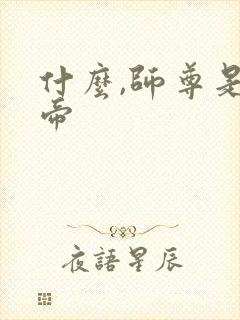 什麼,師尊是
帝
夜語星辰